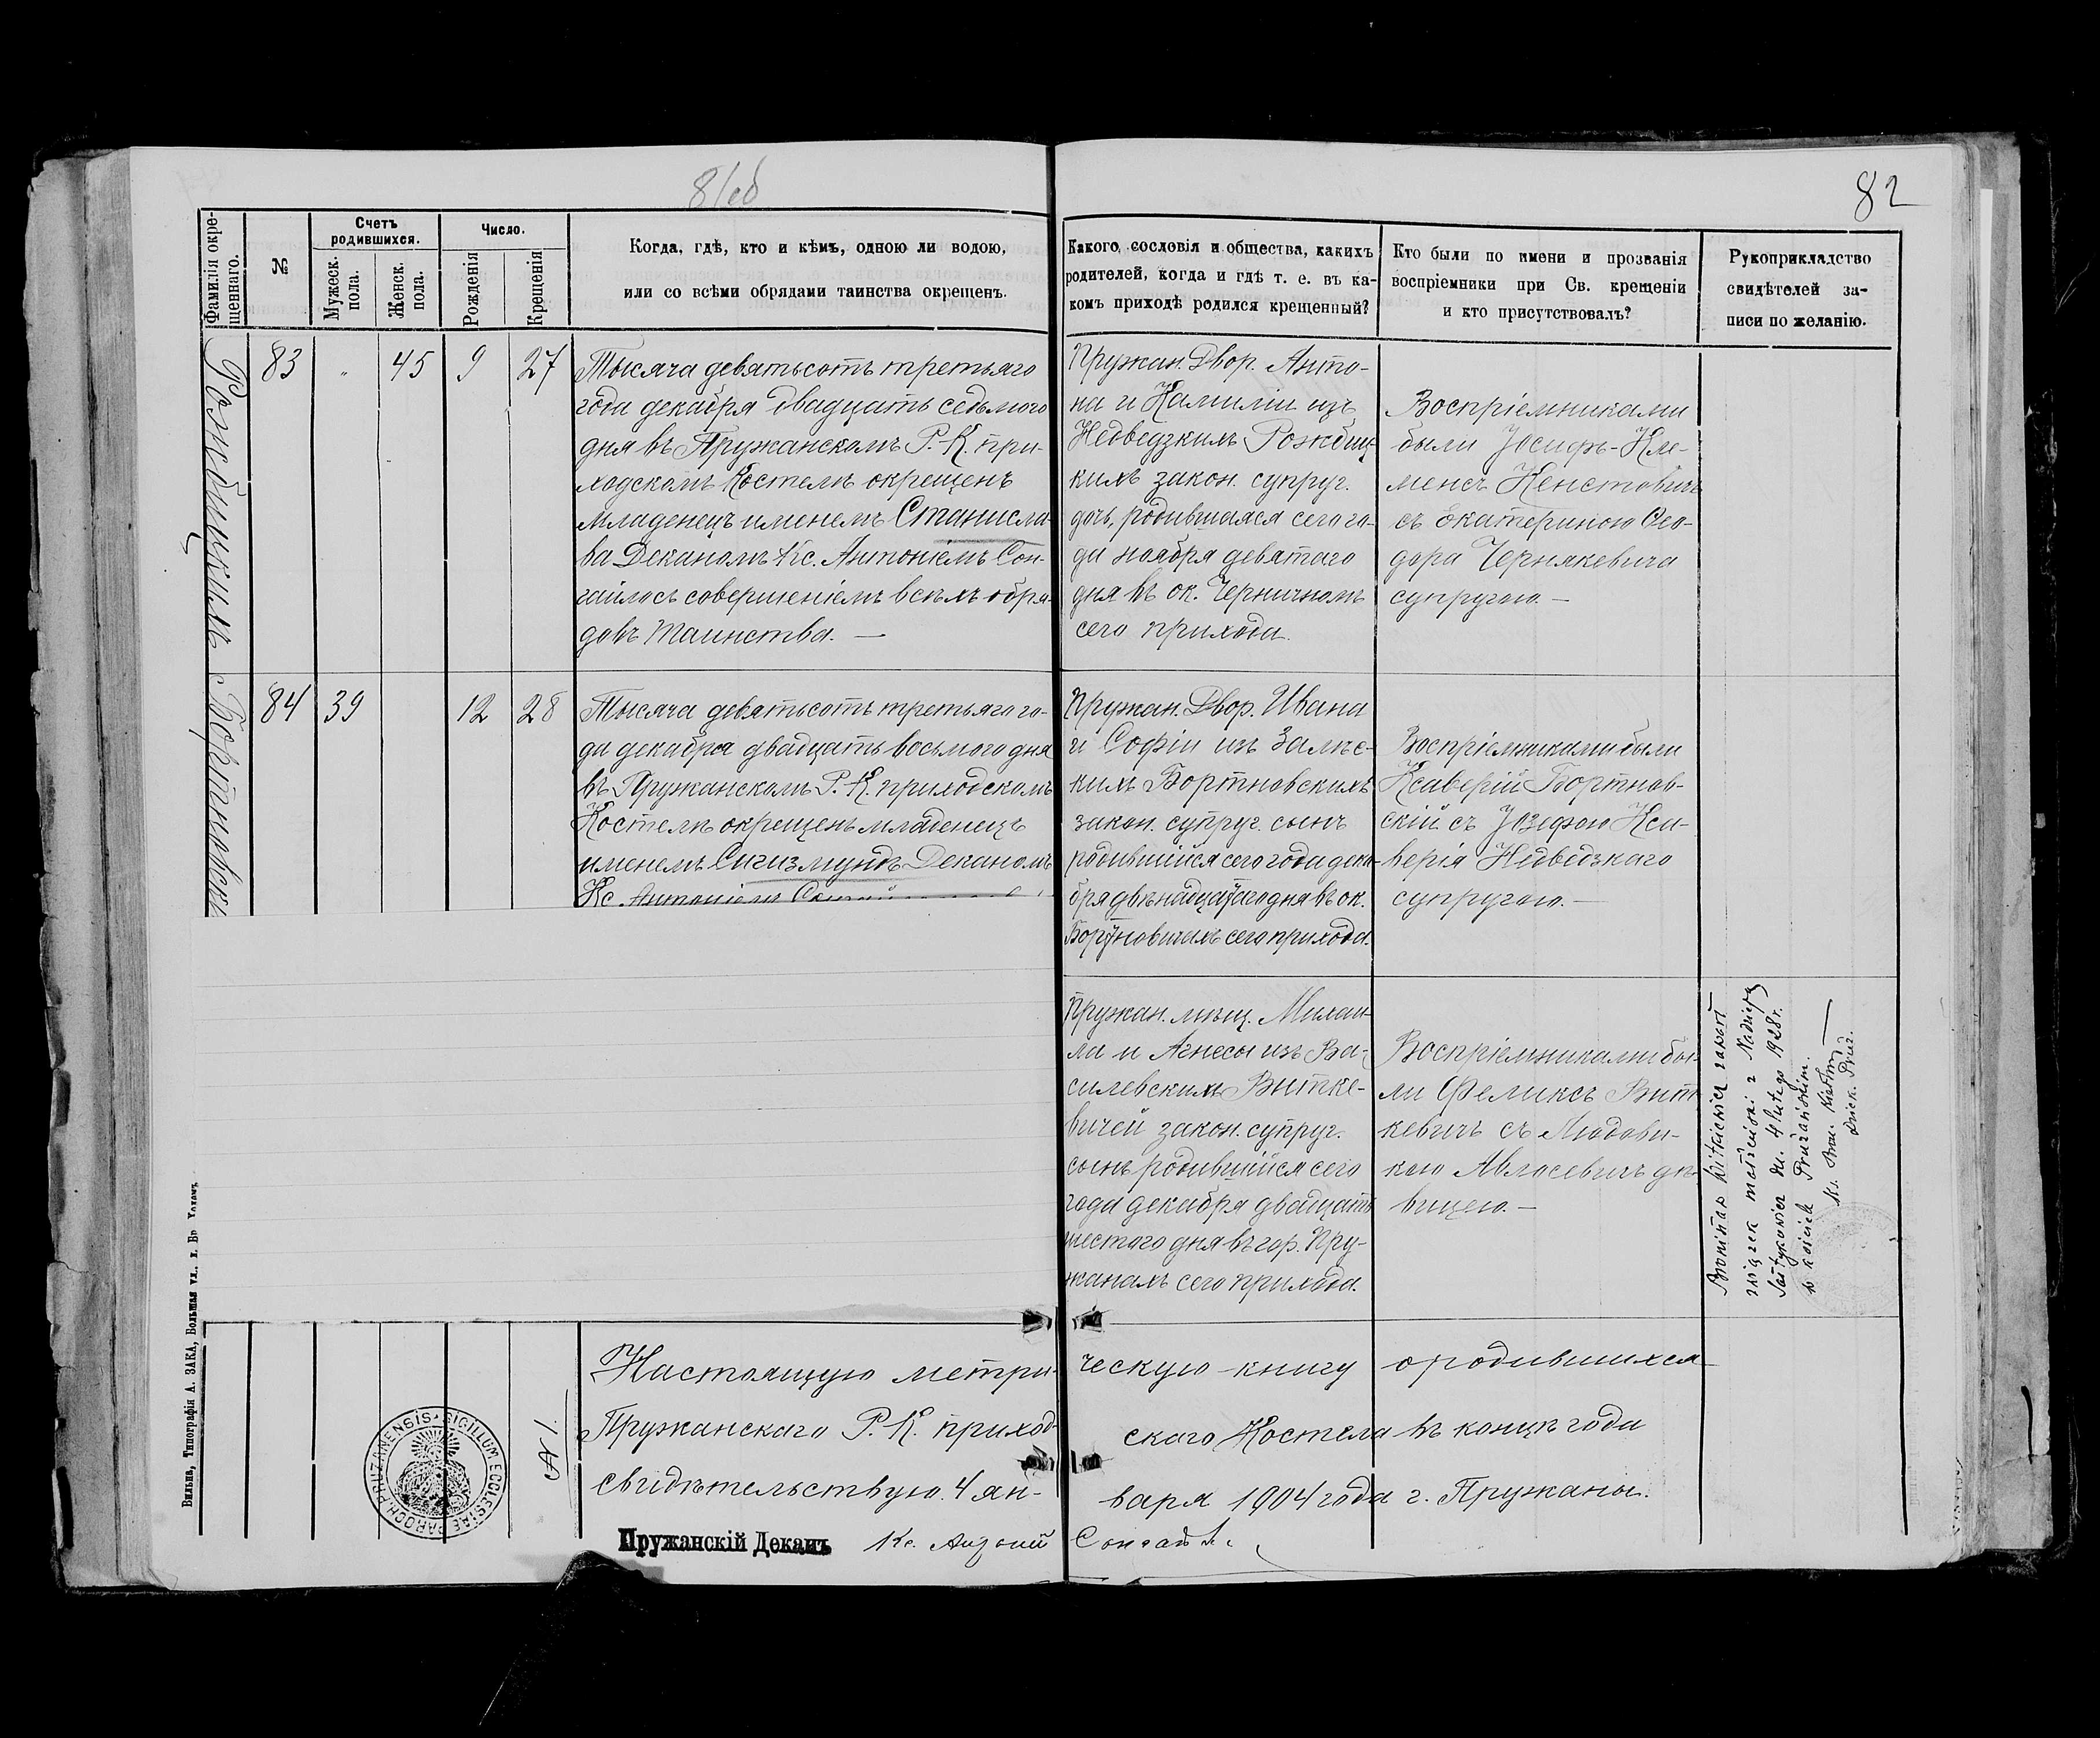 81об
82
Фамилія окрещеннаго.
№
Счетъ родившихся.
Мужеск. пола.
Женск. пола.
Число.
Рожденія
Крещенія
Когда, гдѣ, кто и кѣмъ, одною ли водою,
или со всѣми обрядами таинства окрещенъ.
Какого, сословія и общества, какихъ
родителей, когда и гдѣ т. е. въ ка-
комъ приходѣ родился крещенный?
Кто были по имени и прозванія
воспріемники при Св. крещеніи
и кто присутствовалъ?
Рукоприкладство
свидѣтелей за-
писи по желанію.
83 " 45 9 27
Тысяча девятьсотъ третьяго
года декабря двадцать седьмого
дня въ Пружанскомъ Р. К. при-
ходскомъ Костелѣ окрещенъ
младенецъ именемъ Станисла-
ва Деканомъ Кс. Антоніемъ Сон-
гайло съ совершеніемъ всѣхъ обря-
довъ Таинства. —
Пружан. Двор. Анто-
на и Камиліи изъ
Недведзкихъ Рожбиц-
кихъ закон. супруг.
дочь, родившаяся сего го-
да ноября девятаго
дня въ ок. Черничномъ
сего прихода.
Воспріемниками
были Іосифъ-Кле-
менсъ Кенстовичъ
съ Екатериною Ѳео-
дора Чернякевича
супругою. —
84 39 12 28
Тысяча девятьсотъ третьяго го-
да декабря двадцать восьмого дня
въ Пружанскомъ Р. К. приходскомъ
Костелѣ окрещенъ младенецъ
именемъ Сигизмундъ Деканомъ
Кс. Антоніемъ
Пружан. Двор. Ивана
и Софіи изъ Залѣс-
кихъ Бортновскихъ
закон. супруг. сынъ
родившійся сего года дека-
бря двѣнадцатаго дня въ ок.
Бортновичахъ сего прихода.
Воспріемниками были
Ксаверій Бортнов-
скій съ Іозефою Кса-
верія Недведзкаго
супругою. —
Пружан. мѣщ. Михаи-
ла и Агнесы изъ Ва-
силевскихъ Витке-
вичей закон. супруг.
сынъ родившійся сего
года декабря двадцать
шестого дня въ гор. Пру-
жанахъ сего прихода.
Воспріемниками бы-
ли Феликсъ Вит-
кевичъ съ Людови-
кою Авласевичъ дѣ-
вицею. —
Witkiewicz zawarł
związek małżeński z Nadzieją
dn. 4 lutego 1928 r.
w kościele Prużańskim.
Настоящую метри-ческую книгу о родившихся
Пружанскаго Р. К. приход-скаго Костела въ концѣ года
свидѣтельствую. 4 ян-варя 1904 года г. Пружаны.
№ 1.
SIGILLUM ECCLESIAE PAROCH. PRUZANENSIS
Пружанскій Деканъ Кс. Антоній Сонгайло
Вильна, Типографія А. ЗАКА, Большая ул.